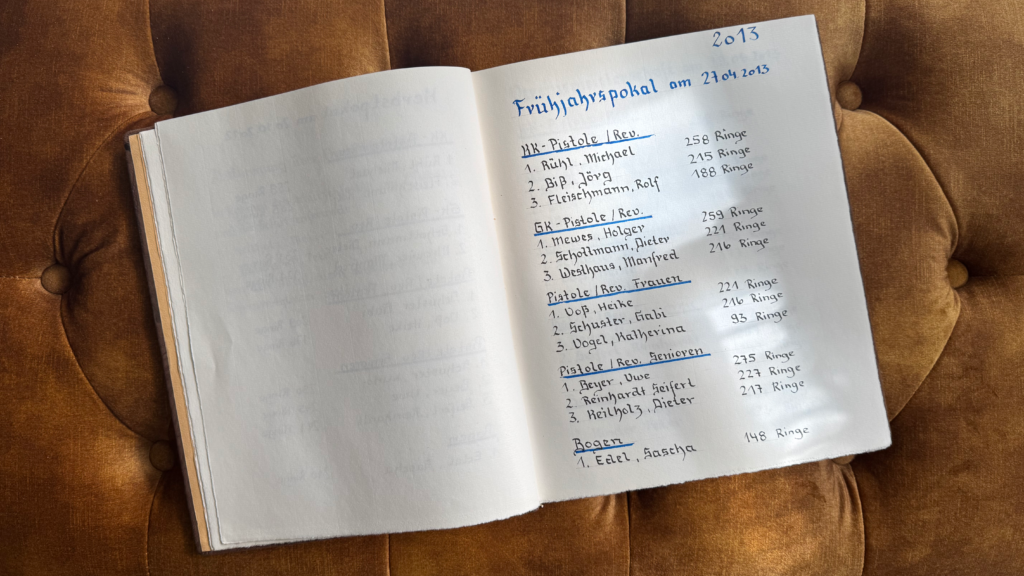 2013
Frühjahrspokal am 27.04.2013
KK-Pistole/Rev.
1. Rühl, Michael 258 Ringe
2. Biß, Jörg 215 Ringe
3. Fleischmann, Rolf 188 Ringe
GK-Pistole/Rev.
1. Mewes, Holger 259 Ringe
2. Schottmann, Dieter 221 Ringe
3. Westhaus, Manfred 216 Ringe
Pistole/Rev. Frauen
1. Voß, Heike 221 Ringe
2. Schuster, Gabi 216 Ringe
3. Vogel, Katherina 93 Ringe
Pistole/Rev. Senioren
1. Beyer, Uwe 275 Ringe
2. Reinhardt Seifert 227 Ringe
3. Heilholz, Dieter 217 Ringe
Bogen
1. Edel, Sascha 148 Ringe